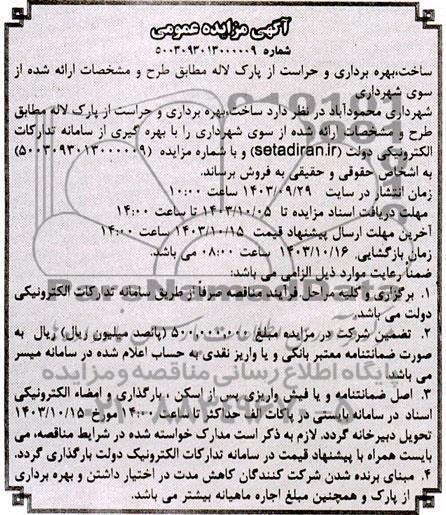 آگهی مزایده عمومی
شماره ۵۰۰۳۰۹۳۰۱۳۰۰۰۰۰۹
ساخت،بهره برداری و حراست از پارک لاله مطابق طرح و مشخصات ارائه شده از
سوی شهرداری
شهرداری محمودآباد در نظر دارد ساخت،بهره برداری و حراست از پارک لاله مطابق
طرح و مشخصات ارائه شده از سوی شهرداری را با بهره گیری از سامانه تدارکات
الکترونیکی دولت (setadiran.ir) و با شماره مزایده (۵۰۰۳۰۹۳۰۱۳۰۰۰۰۰۹)
به اشخاص حقوقی و حقیقی به فروش برساند.
زمان انتشار در سایت ۱۴۰۳/۰۹/۲۹ ساعت ۱۰:۰۰
مهلت دریافت اسناد مزایده تا ۱۴۰۳/۱۰/۰۵ تا ساعت ۱۴:۰۰
آخرین مهلت ارسال پیشنهاد قیمت ۱۴۰۳/۱۰/۱۵ ساعت ۱۴:۰۰
زمان بازگشایی، ۱۴۰۳/۱۰/۱۶ ساعت ۰۸:۰۰ می باشد.
ضمنا رعایت موارد ذیل الزامی می باشد:
۱. برگزاری و کلیه مراحل فرآیند مناقصه صرفا از طریق سامانه تدارکات الکترونیکی
دولت می باشد.
۲. تضمین شرکت در مزایده مبلغ ۵۰۰,۰۰۰,۰۰۰ (پانصد میلیون ریال) ریال به
صورت ضمانتنامه معتبر بانکی و یا واریز نقدی به حساب اعلام شده در سامانه میسر
می باشد.
۳. اصل ضمانتنامه و یا فیش واریزی پس از اسکن ، بارگذاری و امضاء الکترونیکی
اسناد در سامانه بایستی در پاکات الف حداکثر تا ساعت ۱۴:۰۰ مورخ ۱۴۰۳/۱۰/۱۵
تحویل دبیرخانه گردد. لازم به ذکر است مدارک خواسته شده در شرایط مناقصه، می
بایست همراه با پیشنهاد قیمت در سامانه تدارکات الکترونیک دولت بارگذاری گردد.
۴. مبنای برنده شدن شرکت کنندگان کاهش مدت در اختیار داشتن و بهره برداری
از پارک و همچنین مبلغ اجاره ماهیانه بیشتر می باشد.
پایگاه اطلاع رسانی مناقصه و مزایده